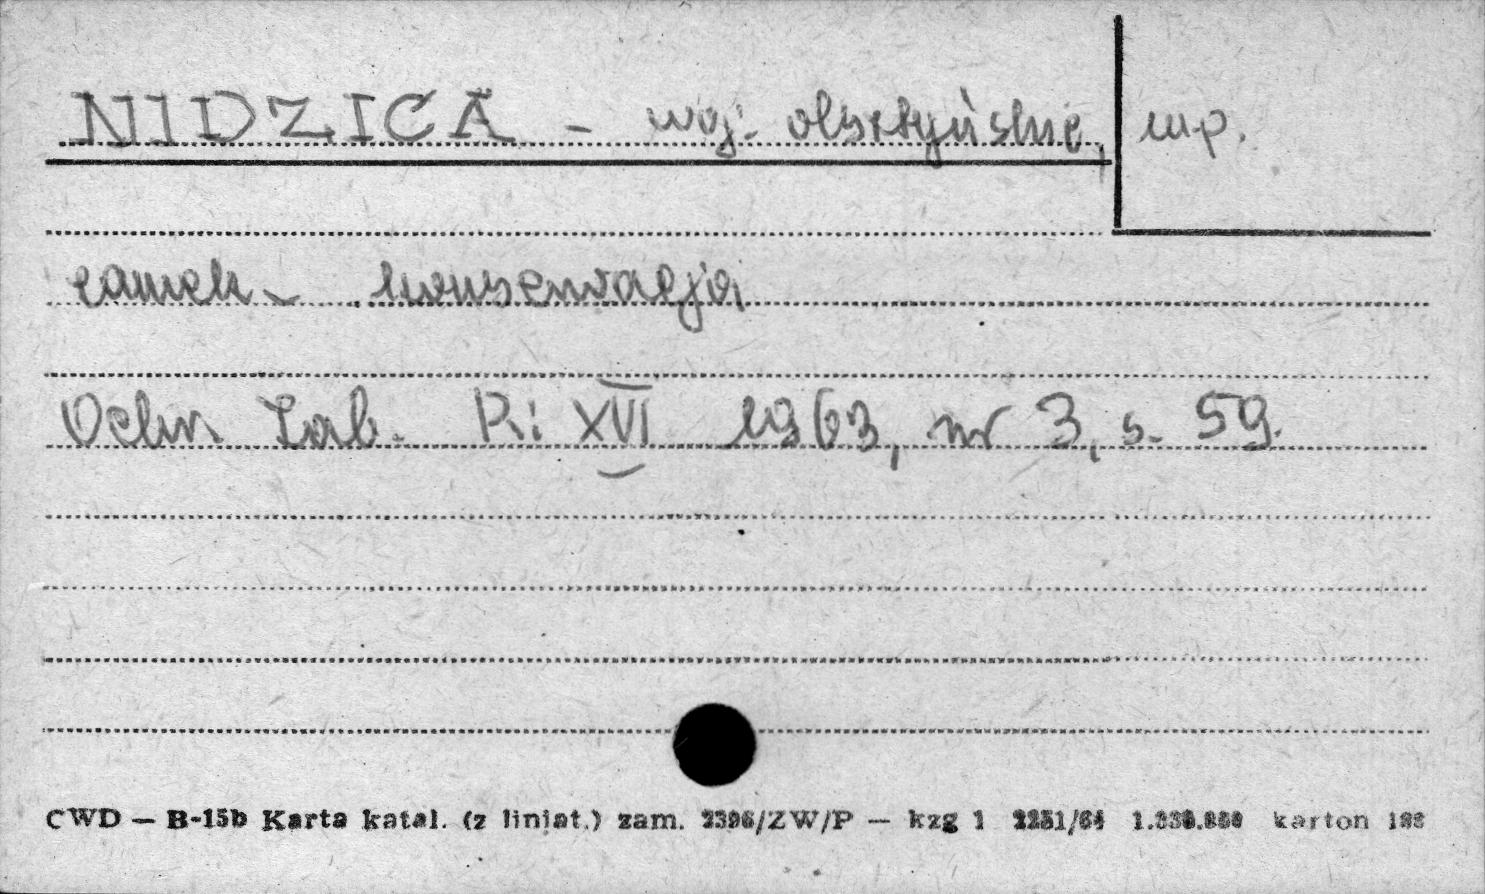 NIDZICA - woj. olsztyńskie, m.p.
zamek - konserwacja
Ochr. Zab. R: XVI 1963, nr 3, s. 59.
CWD — B-15b Karta katal. (z liniat.) zam. 2396/ZW/P — kzg 1 2251/64 karton